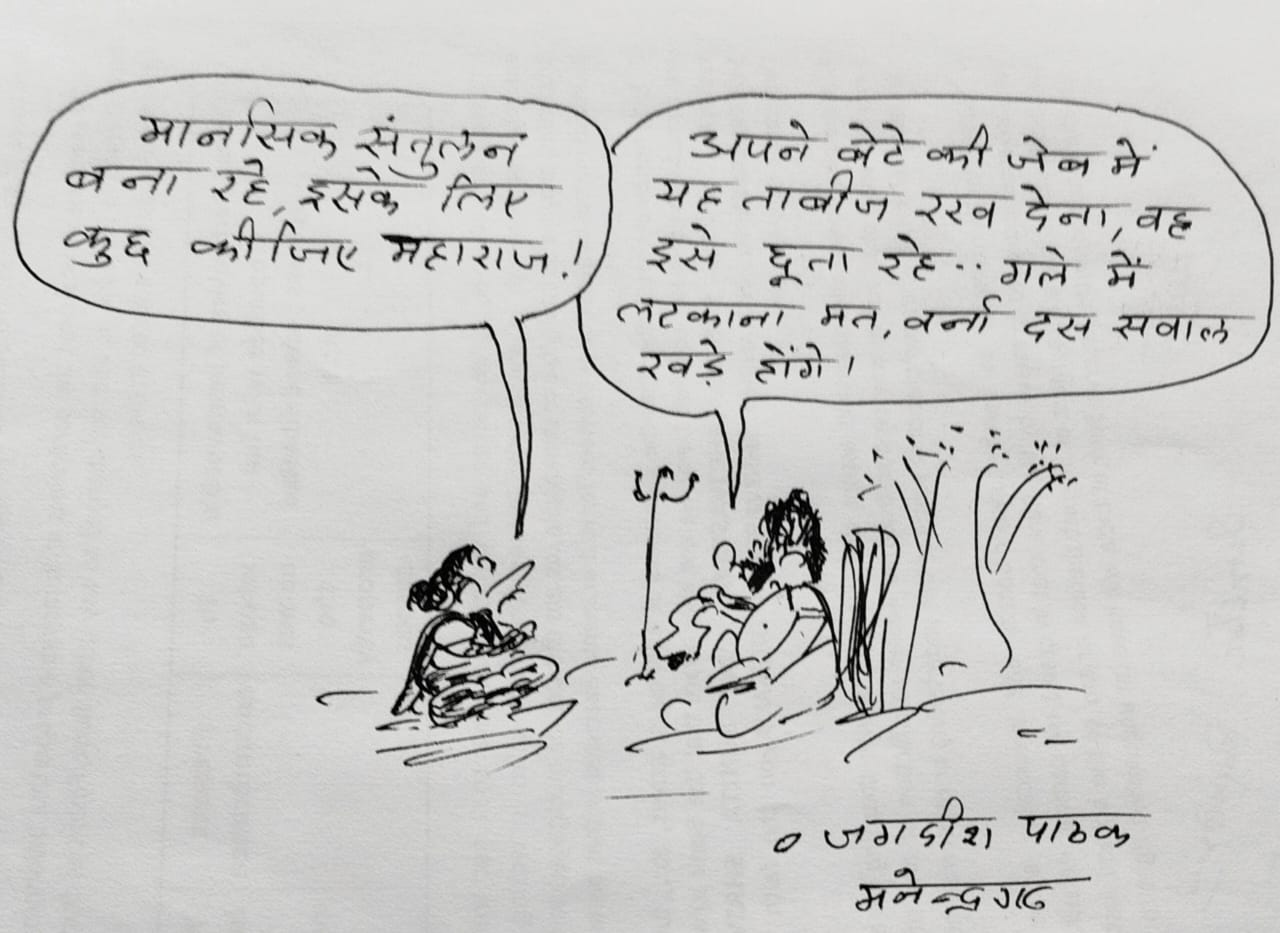 मानसिक संतुलन
बना रहे, इसके लिए
कुछ कीजिए महाराज.!
अपने बेटे की जेब में
यह ताबीज रख देना, वह
इसे छूता रहे.. गले में
लटकाना मत, वर्ना दस सवाल
खड़े होंगे।
० जगदीश पाठक
मनेन्द्रगढ